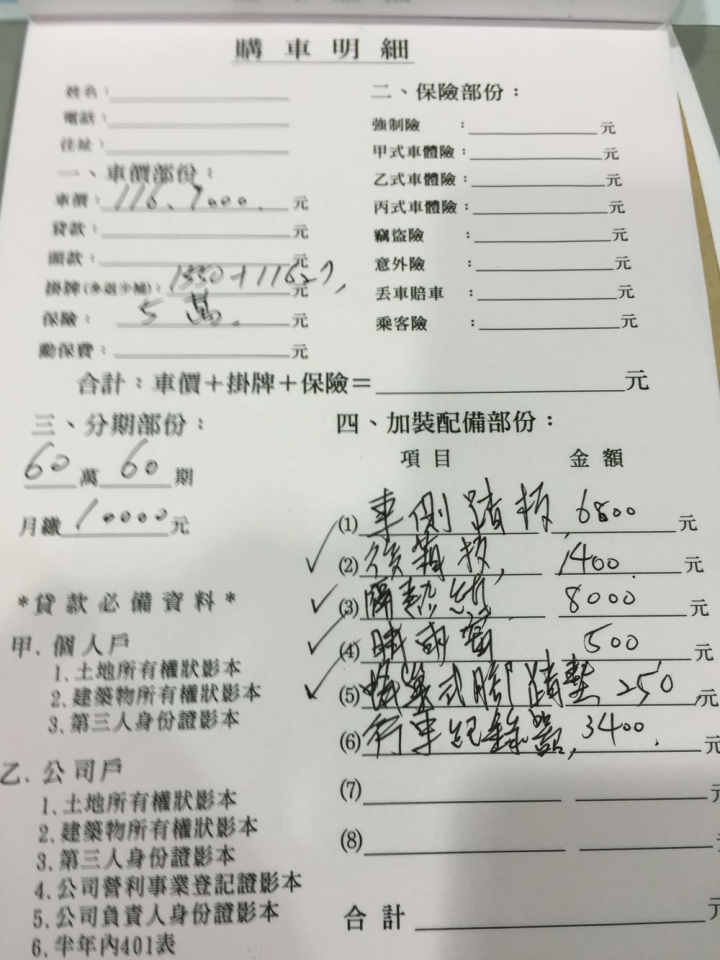 購車明細
姓名：
電話：
住址：
一、車價部份：
車價：116、7000.元
貸款：元
頭款：元
掛牌(多退少補)：1550+11627,元
保險：5萬.元
動保費：元
二、保險部份：
強制險：元
甲式車體險：元
乙式車體險：元
丙式車體險：元
竊盜險：元
意外險：元
丟車賠車：元
乘客險：元
合計：車價＋掛牌＋保險＝元
三、分期部份：
60萬60期
月繳10000元
＊貸款必備資料＊
甲.個人戶
1.土地所有權狀影本
2.建築物所有權狀影本
3.第三人身份證影本
乙.公司戶
1.土地所有權狀影本
2.建築物所有權狀影本
3.第三人身份證影本
4.公司營利事業登記證影本
5.公司負責人身份證影本
6.半年內401表
四、加裝配備部份：
項目 金額
⑴車側踏板,6800元
⑵後箱板,1400元
⑶隔熱紙 8000元
⑷晴雨窗 500元
⑸蜂巢式腳踏墊 250元
⑹行車紀錄器,3400.元
⑺元
⑻元
合計元